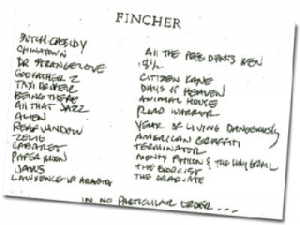 FINCHER
BUTCH CASSIDY
CHINATOWN
DR STRANGELOVE
GODFATHER 2
TAXI DRIVER
BEING THERE
ALL THAT JAZZ
ALIEN
REAR WINDOW
ZELIG
CABARET
PAPER MOON
JAWS
LAWRENCE OF ARABIA
All the PRESIDENT'S MEN
8 1/2
CITIZEN KANE
DAYS OF HEAVEN
ANIMAL HOUSE
ROAD WARRIOR
YEAR OF LIVING DANGEROUSLY
AMERICAN GRAFFITI
TERMINATOR
MONTY PYTHON & THE HOLY GRAIL
THE EXORCIST
THE GRADUATE
IN NO PARTICULAR ORDER...